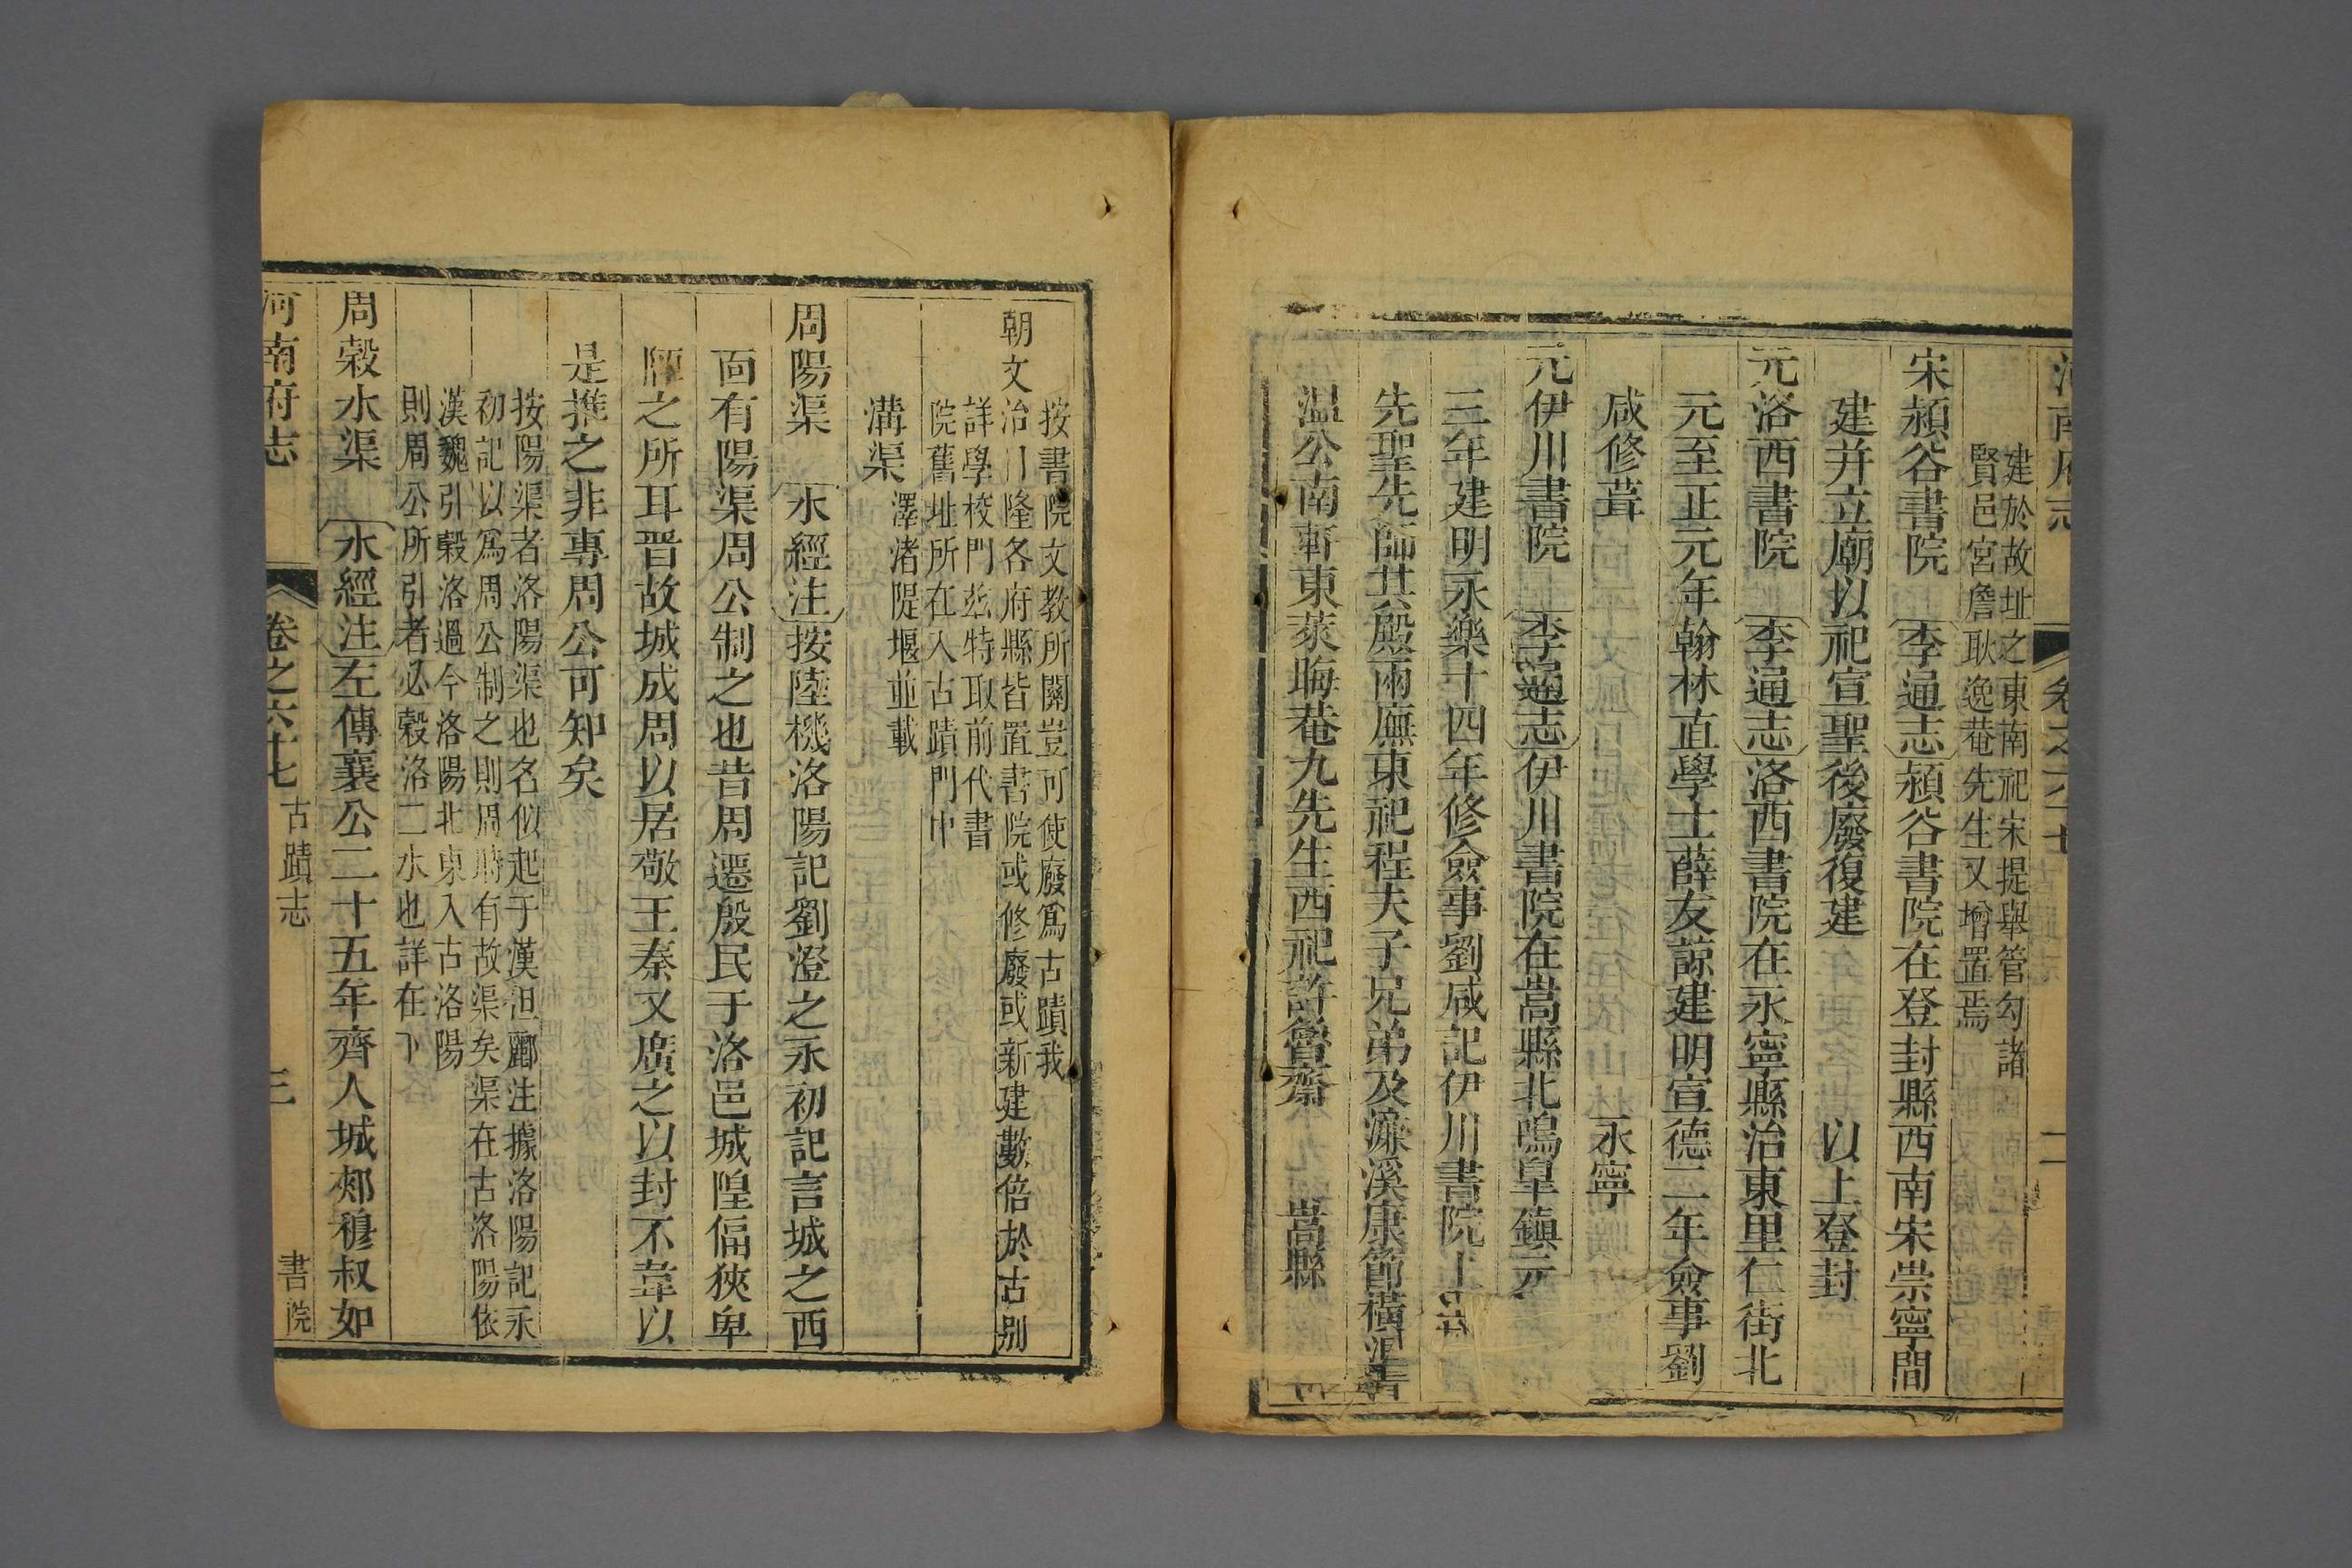 建於故址之東南祀宋提舉管勾諸
賢邑宮詹耿逸菴先生又增置焉
宋潁谷書院 李通志潁谷書院在登封縣西南宋崇寧間
建并立廟以祀宣聖後廢復建 以上登封
元洛西書院 李通志洛西書院在永寧縣治東里仁街北
元至正元年翰林直學士薛友諒建明宣德二年僉事劉
咸修葺 永寧
元伊川書院 李通志伊川書院在嵩縣北鳴臯鎮元
三年建明永樂十四年修僉事劉咸記伊川書院上
先聖先師其殿兩廡東祀程夫子兄弟及濂溪康節橫渠
温公南軒東萊晦菴九先生西祀許魯齋 嵩縣
河南府志 卷之六十七 古蹟志 三 書院
按書院文教所關豈可使廢爲古蹟我
朝文治隆各府縣皆置書院或修廢或新建數倍於古别
詳學校門玆特取前代書
院舊址所在入古蹟門中
溝渠 澤渚隄堰並載
周陽渠 水經注按陸機洛陽記劉澄之永初記言城之西
面有陽渠周公制之也昔周遷殷民于洛邑城隍偪狹卑
陋之所耳晋故城成周以居敬王秦又廣之以封不韋以
是推之非專周公可知矣
按陽渠者洛陽渠也名似起于漢但酈注據洛陽記永
初記以爲周公制之則周時有故渠矣渠在古洛陽依
漢魏引穀洛過今洛陽北東入古洛陽
則周公所引者必穀洛二水也詳在下
周穀水渠 水經注左傳襄公二十五年齊人城郟穆叔如